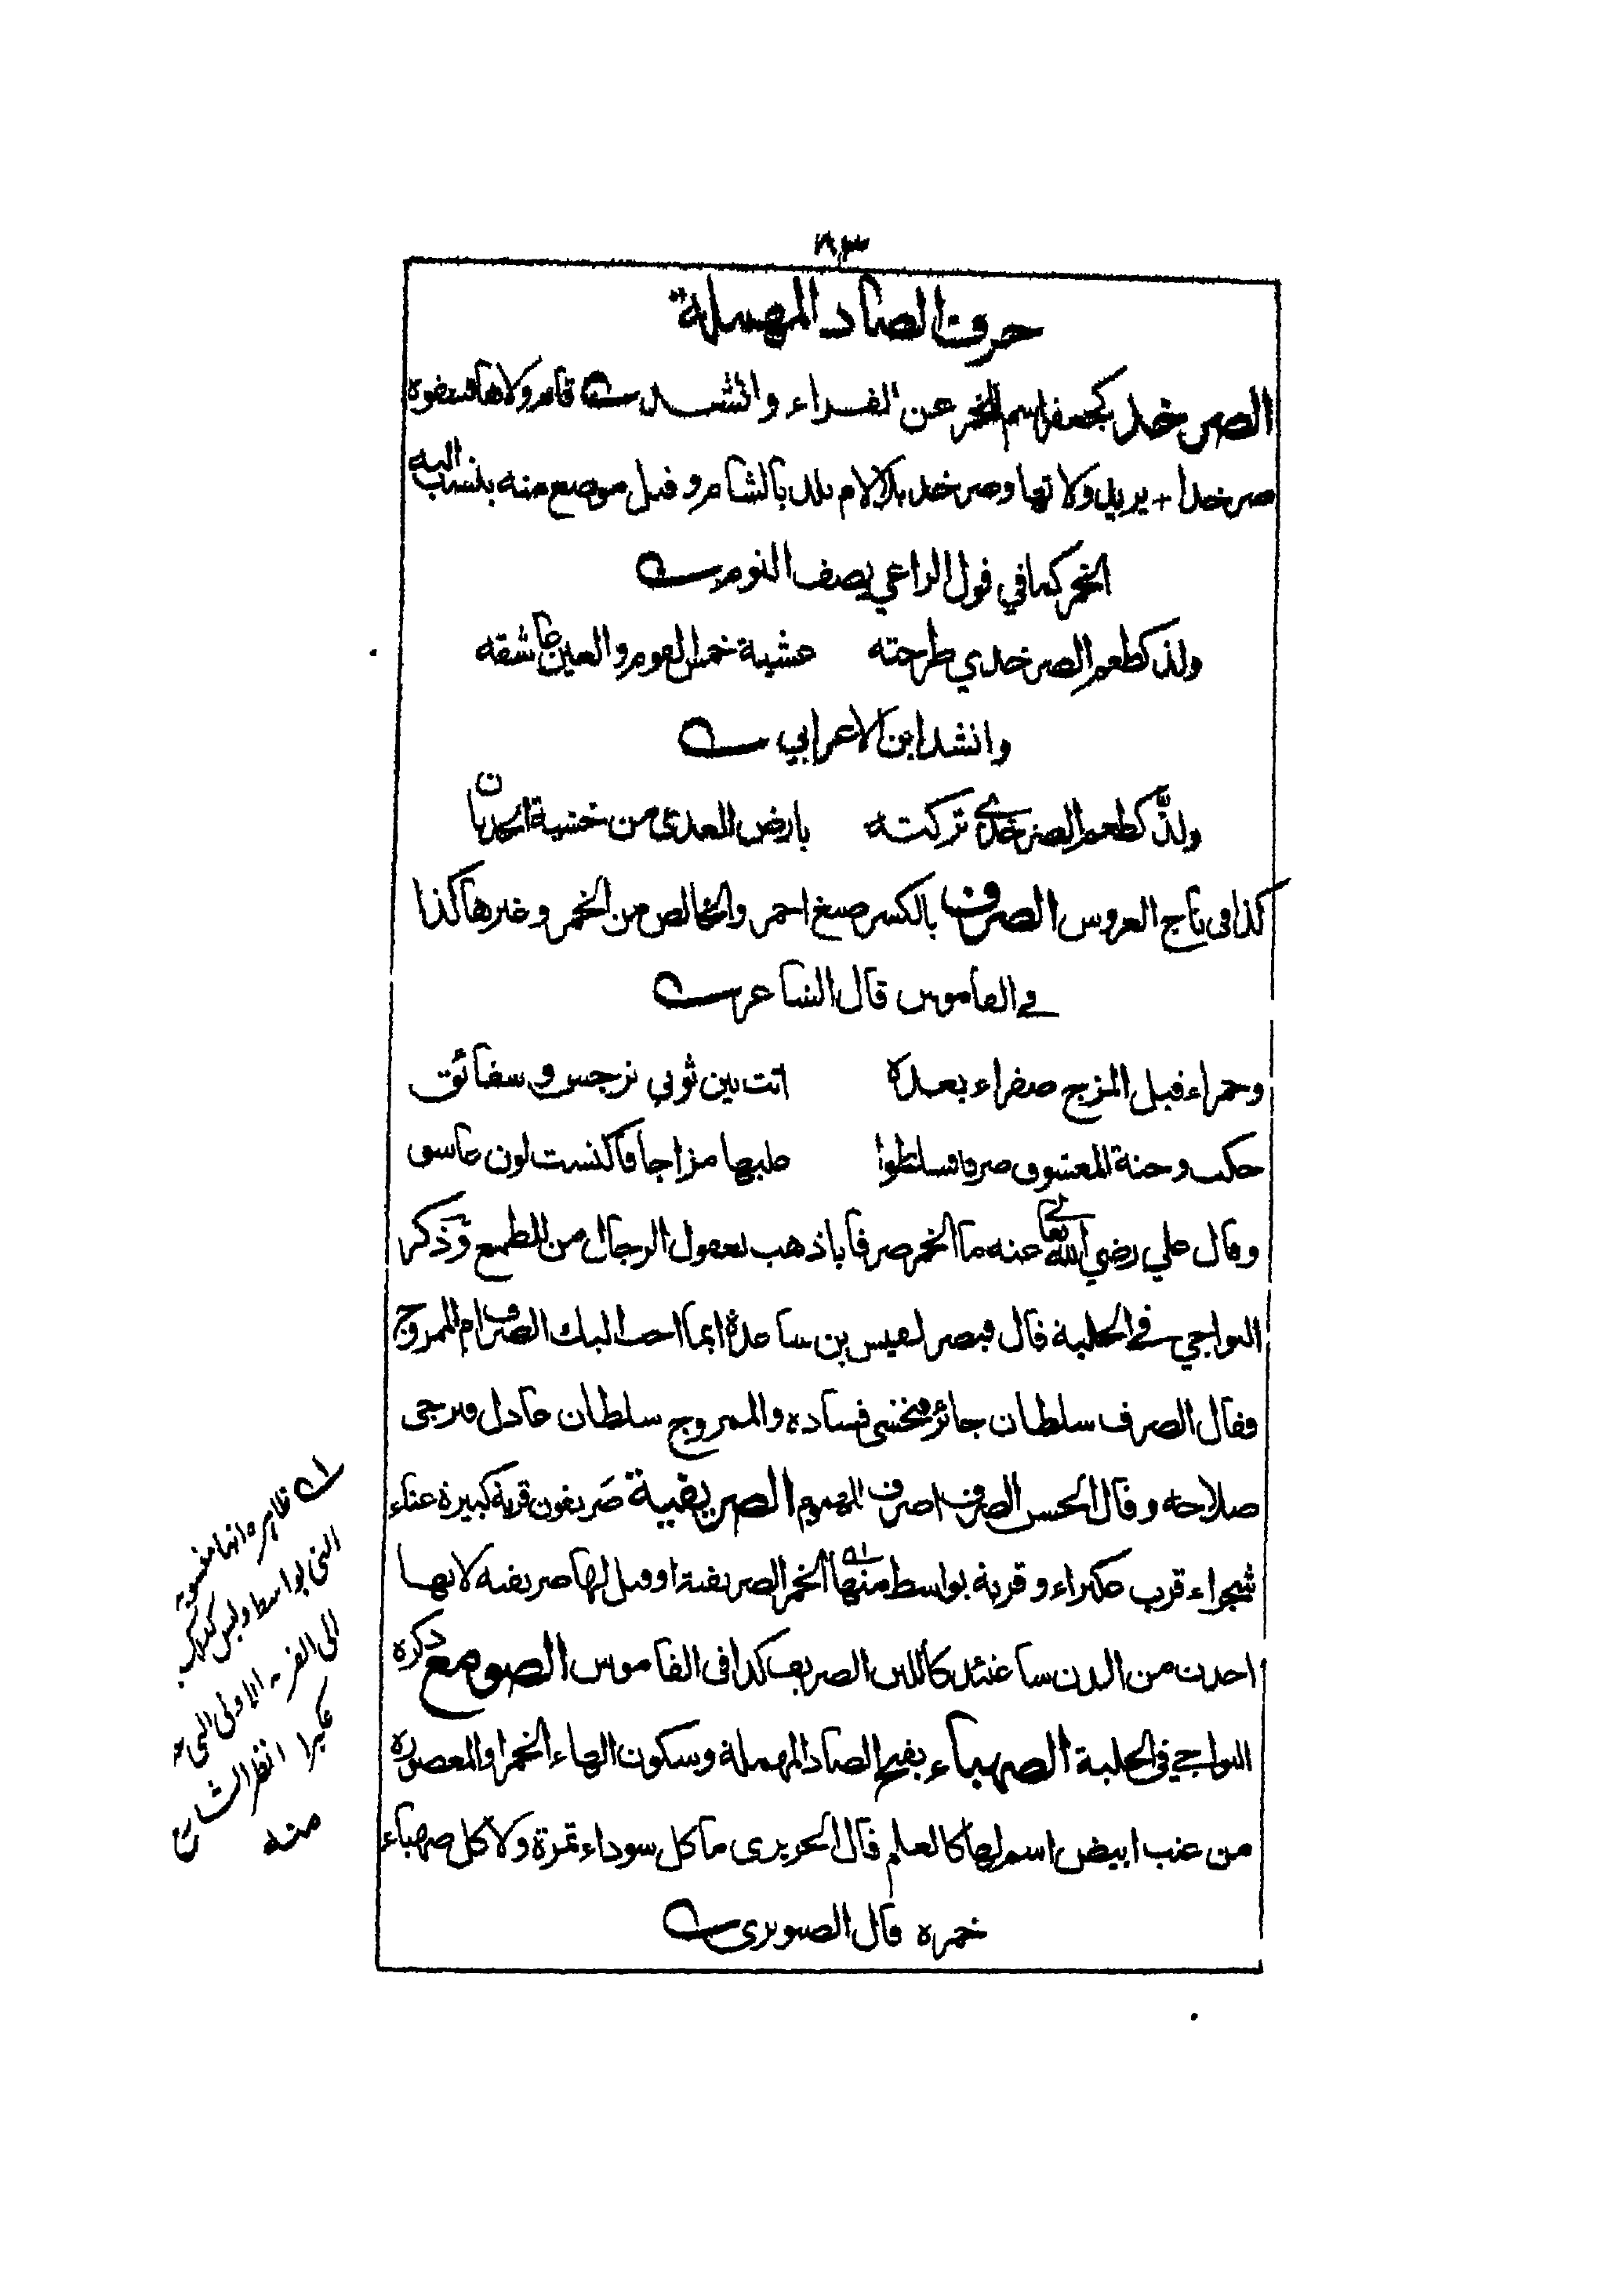 ٨٣
حرف الصاد المهملة
الصرخد كجعفر اسم للخمر عن الفراء وانشد قام ولاها فسقوه
صرخدا + يريد ولاتها وصرخد بلا لام بلد بالشام وقيل موضع منه ينسب اليه
الخمر كما في قول الراعي يصف النوم
ولذ كطعم الصرخدي طرحته عشية خمس القوم والعين عاشقه
وانشد ابن الاعرابي
ولذّ كطعم الصرخدي تركته بارض العدى من خشية الحدثان
كذا في تاج العروس الصرف بالكسر صبغ احمر والخالص من الخمر وغيرها كذا
في القاموس قال الشاعر
وحمراء قبل المزج صفراء بعده اتت بين ثوبي نرجس وشقائق
حكت وجنة المعشوق صرفا فسلطوا عليها مزاجا فاكتست لون عاشق
وقال علي رضي الله تعالى عنه ما الخمر صرفا باذهب لعقول الرجال من الطمع وذكر
النواجي في الحلبة قال قيصر لقيس بن ساعدة ايما احب اليك الصرف ام الممزوج
فقال الصرف سلطان جائز فيخشى فساده والممزوج سلطان عادل فيرجى
صلاحه وقال الحسن الصرف اصرف للهموم الصريفية صَريفون قرية كبيرة غناء
شجراء قرب عكبراء وقرية بواسط منها الخمر الصريفية او قيل لها صريفية لانها
اخذت من الدن ساعتئذ كاللبن الصريف كذا في القاموس الصومع ذكره
النواجي في الحلبة الصهباء بفتح الصاد المهملة وسكون الهاء الخمر او المعصورة
من عنب ابيض اسم لها كالعلم قال الحريري ما كل سوداء تمرة ولا كل صهباء
خمره قال الصنوبري
ظاهره انها منسوبه
التي بواسط وليس كذلك
الى القريه الاولى التي
عكبرا انظر الشارح
منه